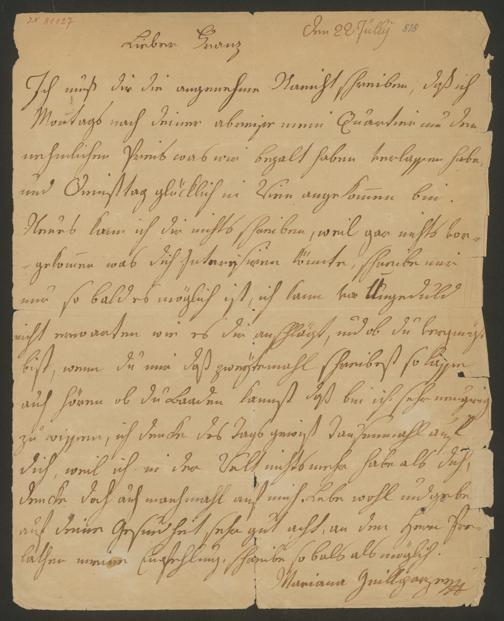 IN 81127
den 22 Jully 818
Lieber Franz
Ich muß dir die angenehme Nanicht schreiben, daß ich
Montags nach deiner abreise mein Quartier um den
nehmlichen Preis was wir bezalt haben verlassen habe,
und Dienstag glücklich in Wien angekommen bin.
Neues kann ich dir nichts schreiben, weil gar nichts vor-
-gekommen was dich Interesiren könnte, schreibe mir
nur so bald es möglich ist, ich kann vor Ungeduld
nicht erwarten wie es dir anschlägt, und ob du vergnügt
bist, wenn du mir daß zweytemahl schreibest so lasse
auch hören ob du Baaden kannst daß bin ich sehr neugirig
zu wissen, ich denke des Tags gewiß Tausenmahl auf
dich, weil ich in der Welt nichts mehr habe als dich,
denke doch auch manchmahl auf mich. Lebe wohl und gebe
auf deine Gesundheit sehr gut acht, an den Herrn
meine Empfehlung. schreibe so bald als möglich.
Mariana Grillparzer